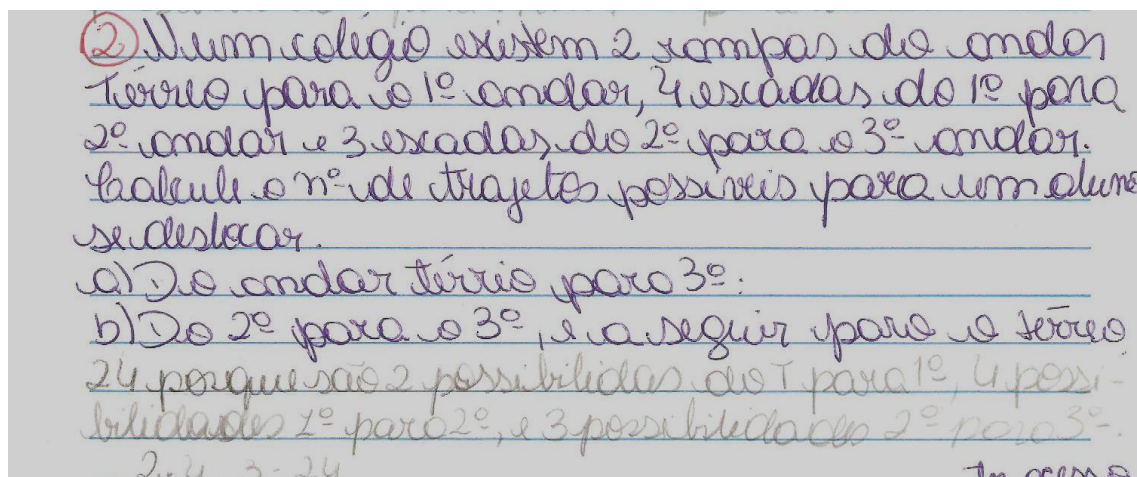 ② Num colégio existem 2 rampas do andar
térreo para o 1º andar, 4 escadas do 1º para
2º andar e 3 escadas do 2º para o 3º andar.
Calcule o nº de trajetos possíveis para um aluno
se deslocar.
a) Do andar térrio para 3º:
b) Do 2º para o 3º, e a seguir para o térreo
24 porque são 2 possibilidas do T para 1º, 4 possi-
bilidades 1º para 2º, e 3 possibilidades 2º para 3º.
2.4.3=24